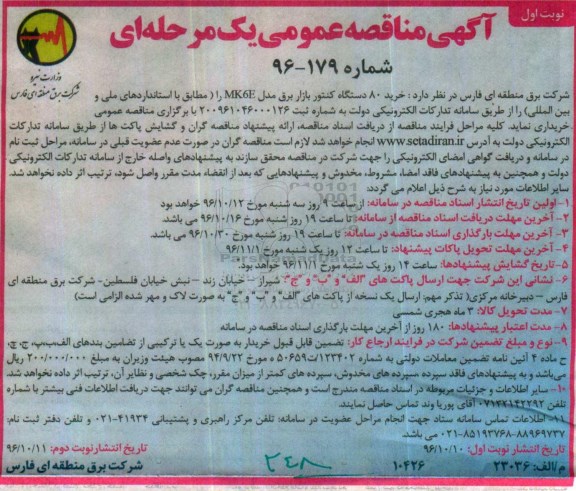 نوبت اول
آگهی مناقصه عمومی یک مرحله‌ای
شماره ۱۷۹-۹۶
وزارت نیرو
شرکت برق منطقه ای فارس
شرکت برق منطقه ای فارس در نظر دارد : خرید ۸۰ دستگاه کنتور بازار برق مدل MK6E را ( مطابق با استانداردهای ملی و
بین المللی) را از طریق سامانه تدارکات الکترونیکی دولت به شماره ثبت ۲۰۰۹۶۱۰۴۶۰۰۰۱۲۶ با برگزاری مناقصه عمومی
خریداری نماید. کلیه مراحل فرایند مناقصه از دریافت اسناد مناقصه، ارائه پیشنهاد مناقصه گران و گشایش پاکت ها از طریق سامانه تدارکات
الکترونیکی دولت به آدرس www.setadiran.ir انجام خواهد شد لازم است مناقصه گران در صورت عدم عضویت قبلی در سامانه، مراحل ثبت نام
در سامانه و دریافت گواهی امضای الکترونیکی را جهت شرکت در مناقصه محقق سازند به پیشنهادهای واصله خارج از سامانه تدارکات الکترونیکی
دولت و همچنین به پیشنهادهای فاقد امضاء، مشروط، مخدوش و پیشنهادهایی که بعد از انقضاء مدت مقرر واصل شود، ترتیب اثر داده نخواهد شد.
سایر اطلاعات مورد نیاز به شرح ذیل اعلام می گردد:
۱- اولین تاریخ انتشار اسناد مناقصه در سامانه: از ساعت ۹ روز سه شنبه مورخ ۹۶/۱۰/۱۲ خواهد بود
۲- آخرین مهلت دریافت اسناد مناقصه از سامانه: تا ساعت ۱۹ روز شنبه مورخ ۹۶/۱۰/۱۶ می باشد.
۳- آخرین مهلت بارگذاری اسناد مناقصه در سامانه: تا ساعت ۱۹ روز شنبه مورخ ۹۶/۱۰/۳۰ می باشد.
۴- آخرین مهلت تحویل پاکات پیشنهاد: تا ساعت ۱۲ روز یک شنبه مورخ ۹۶/۱۱/۱
۵- تاریخ گشایش پیشنهادها: ساعت ۱۴ روز یک شنبه مورخ ۹۶/۱۱/۱ خواهد بود.
۶- نشانی این شرکت جهت ارسال پاکت های "الف" و "ب" و "ج": شیراز – خیابان زند – نبش خیابان فلسطین- شرکت برق منطقه ای
فارس – دبیرخانه مرکزی( تذکر مهم: ارسال یک نسخه از پاکت های "الف" و "ب" و "ج" به صورت لاک و مهر شده الزامی است)
۷- مدت تحویل کالا: ۳ ماه هجری شمسی
۸- مدت اعتبار پیشنهادها: ۱۸۰ روز از آخرین مهلت بارگذاری اسناد مناقصه در سامانه
۹- نوع و مبلغ تضمین شرکت در فرایند ارجاع کار: تضمین قابل قبول خریدار به صورت یک یا ترکیبی از تضامین بندهای الف،ب،پ، ج، چ،
ح ماده ۴ آئین نامه تضمین معاملات دولتی به شماره ۱۲۳۴۰۲/ت۵۰۶۵۹ ه مورخ ۹۴/۹/۲۲ مصوب هیئت وزیران به مبلغ ۲۰۰/۰۰۰/۰۰۰ ریال
می‌باشد و به پیشنهادهای فاقد سپرده ،سپرده های مخدوش، سپرده های کمتر از میزان مقرر، چک شخصی و نظایر آن، ترتیب اثر داده نخواهد شد.
۱۰- سایر اطلاعات و جزئیات مربوطه در اسناد مناقصه مندرج است و همچنین مناقصه گران می توانند جهت دریافت اطلاعات فنی بیشتر با شماره
تلفن ۰۷۱۳۲۱۴۲۲۹۲ آقای پوریا وند تماس حاصل نمایند.
۱۱- اطلاعات تماس سامانه ستاد جهت انجام مراحل عضویت در سامانه: تلفن مرکز راهبری و پشتیبانی ۴۱۹۳۴-۰۲۱ و تلفن دفتر ثبت نام:
۸۸۹۶۹۷۳۷-۸۵۱۹۳۷۶۸-۰۲۱ می باشد.
تاریخ انتشار نوبت اول: ۹۶/۱۰/۱۰
تاریخ انتشار نوبت دوم: ۹۶/۱۰/۱۱
م/الف: ۲۳۰۳۶
۱۰۴۲۶
۲۴۸
شرکت برق منطقه ای فارس